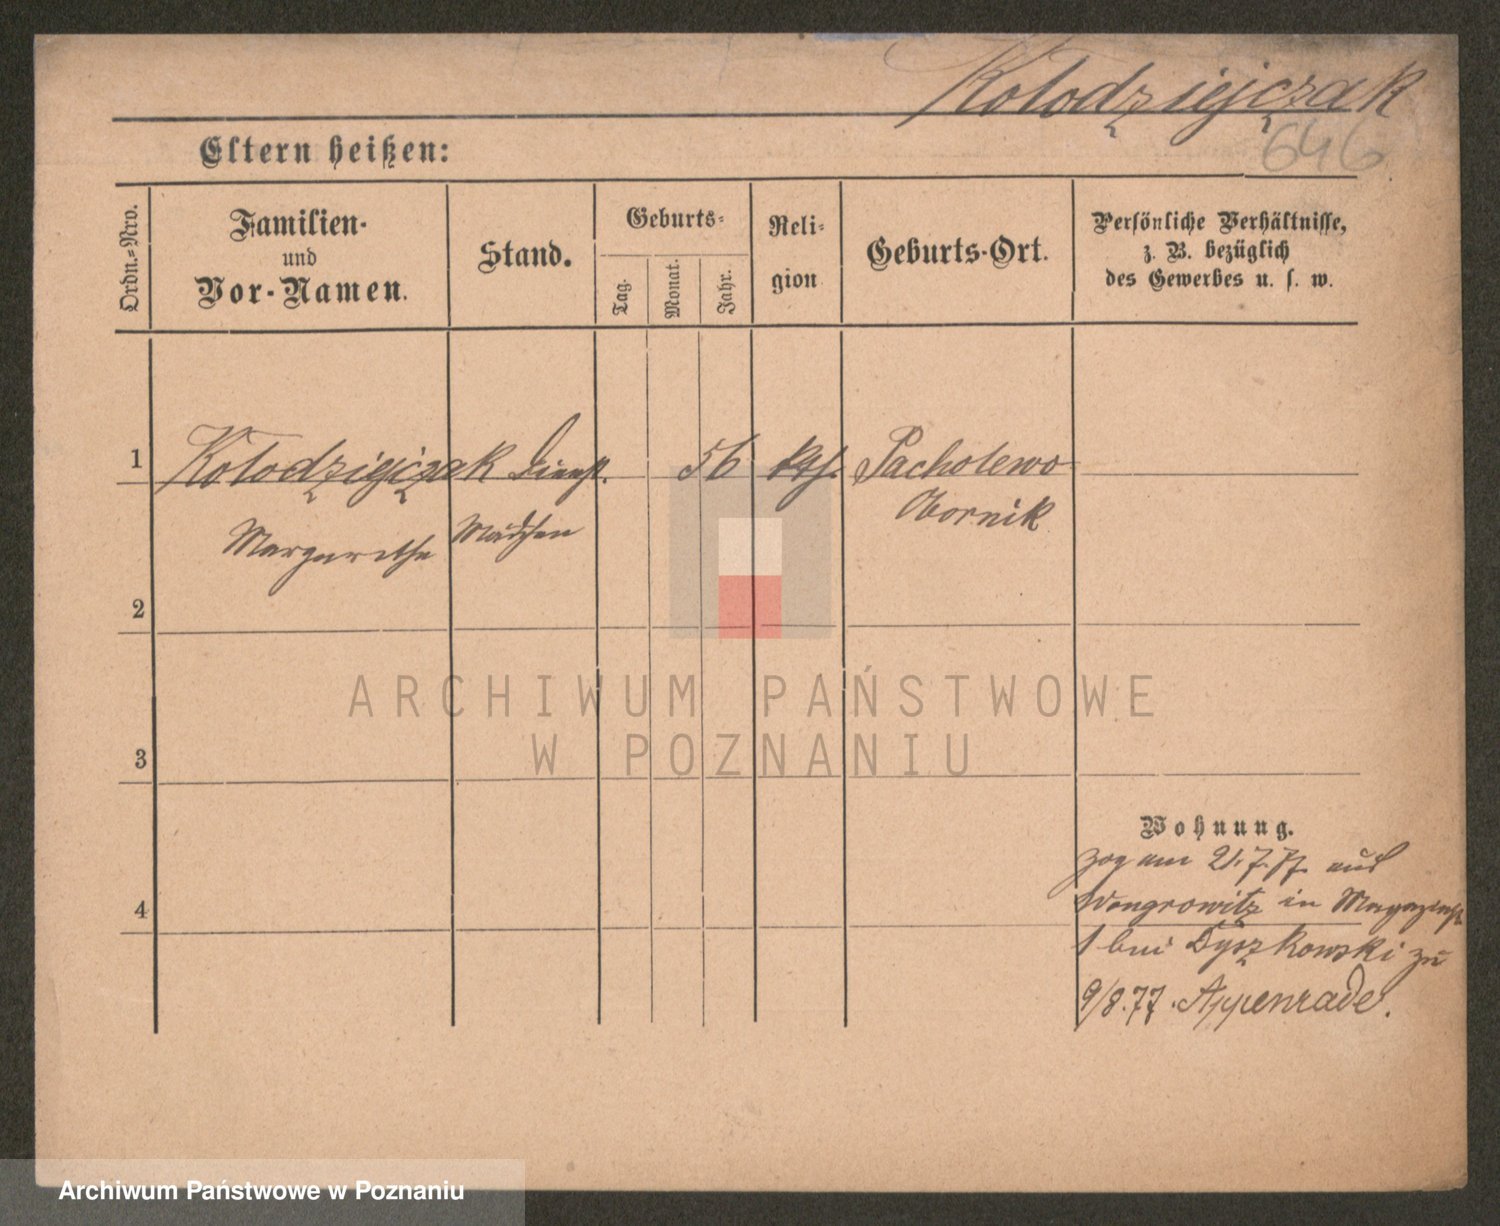 Kolodziejczak
646
Eltern heißen:
Ordn.=Nro.
Familien-
und
Vor-Namen.
Stand.
Geburts-
Tag.
Monat.
Jahr.
Reli-
gion
Geburts-Ort.
Persönliche Verhältnisse,
z. B. bezüglich
des Gewerbes u. s. w.
1 Kolodziejczak Dienst. 56 kth. Pacholewo
Margarethe Mädchen Obornik
2
ARCHIWUM PAŃSTWOWE
W POZNANIU
3
Wohnung.
zog am 21.7.77. aus
4 Wongrowitz in Magazinst.
1 bei Dyszkowski zu
9/8.77. Appenrade.
Archiwum Państwowe w Poznaniu